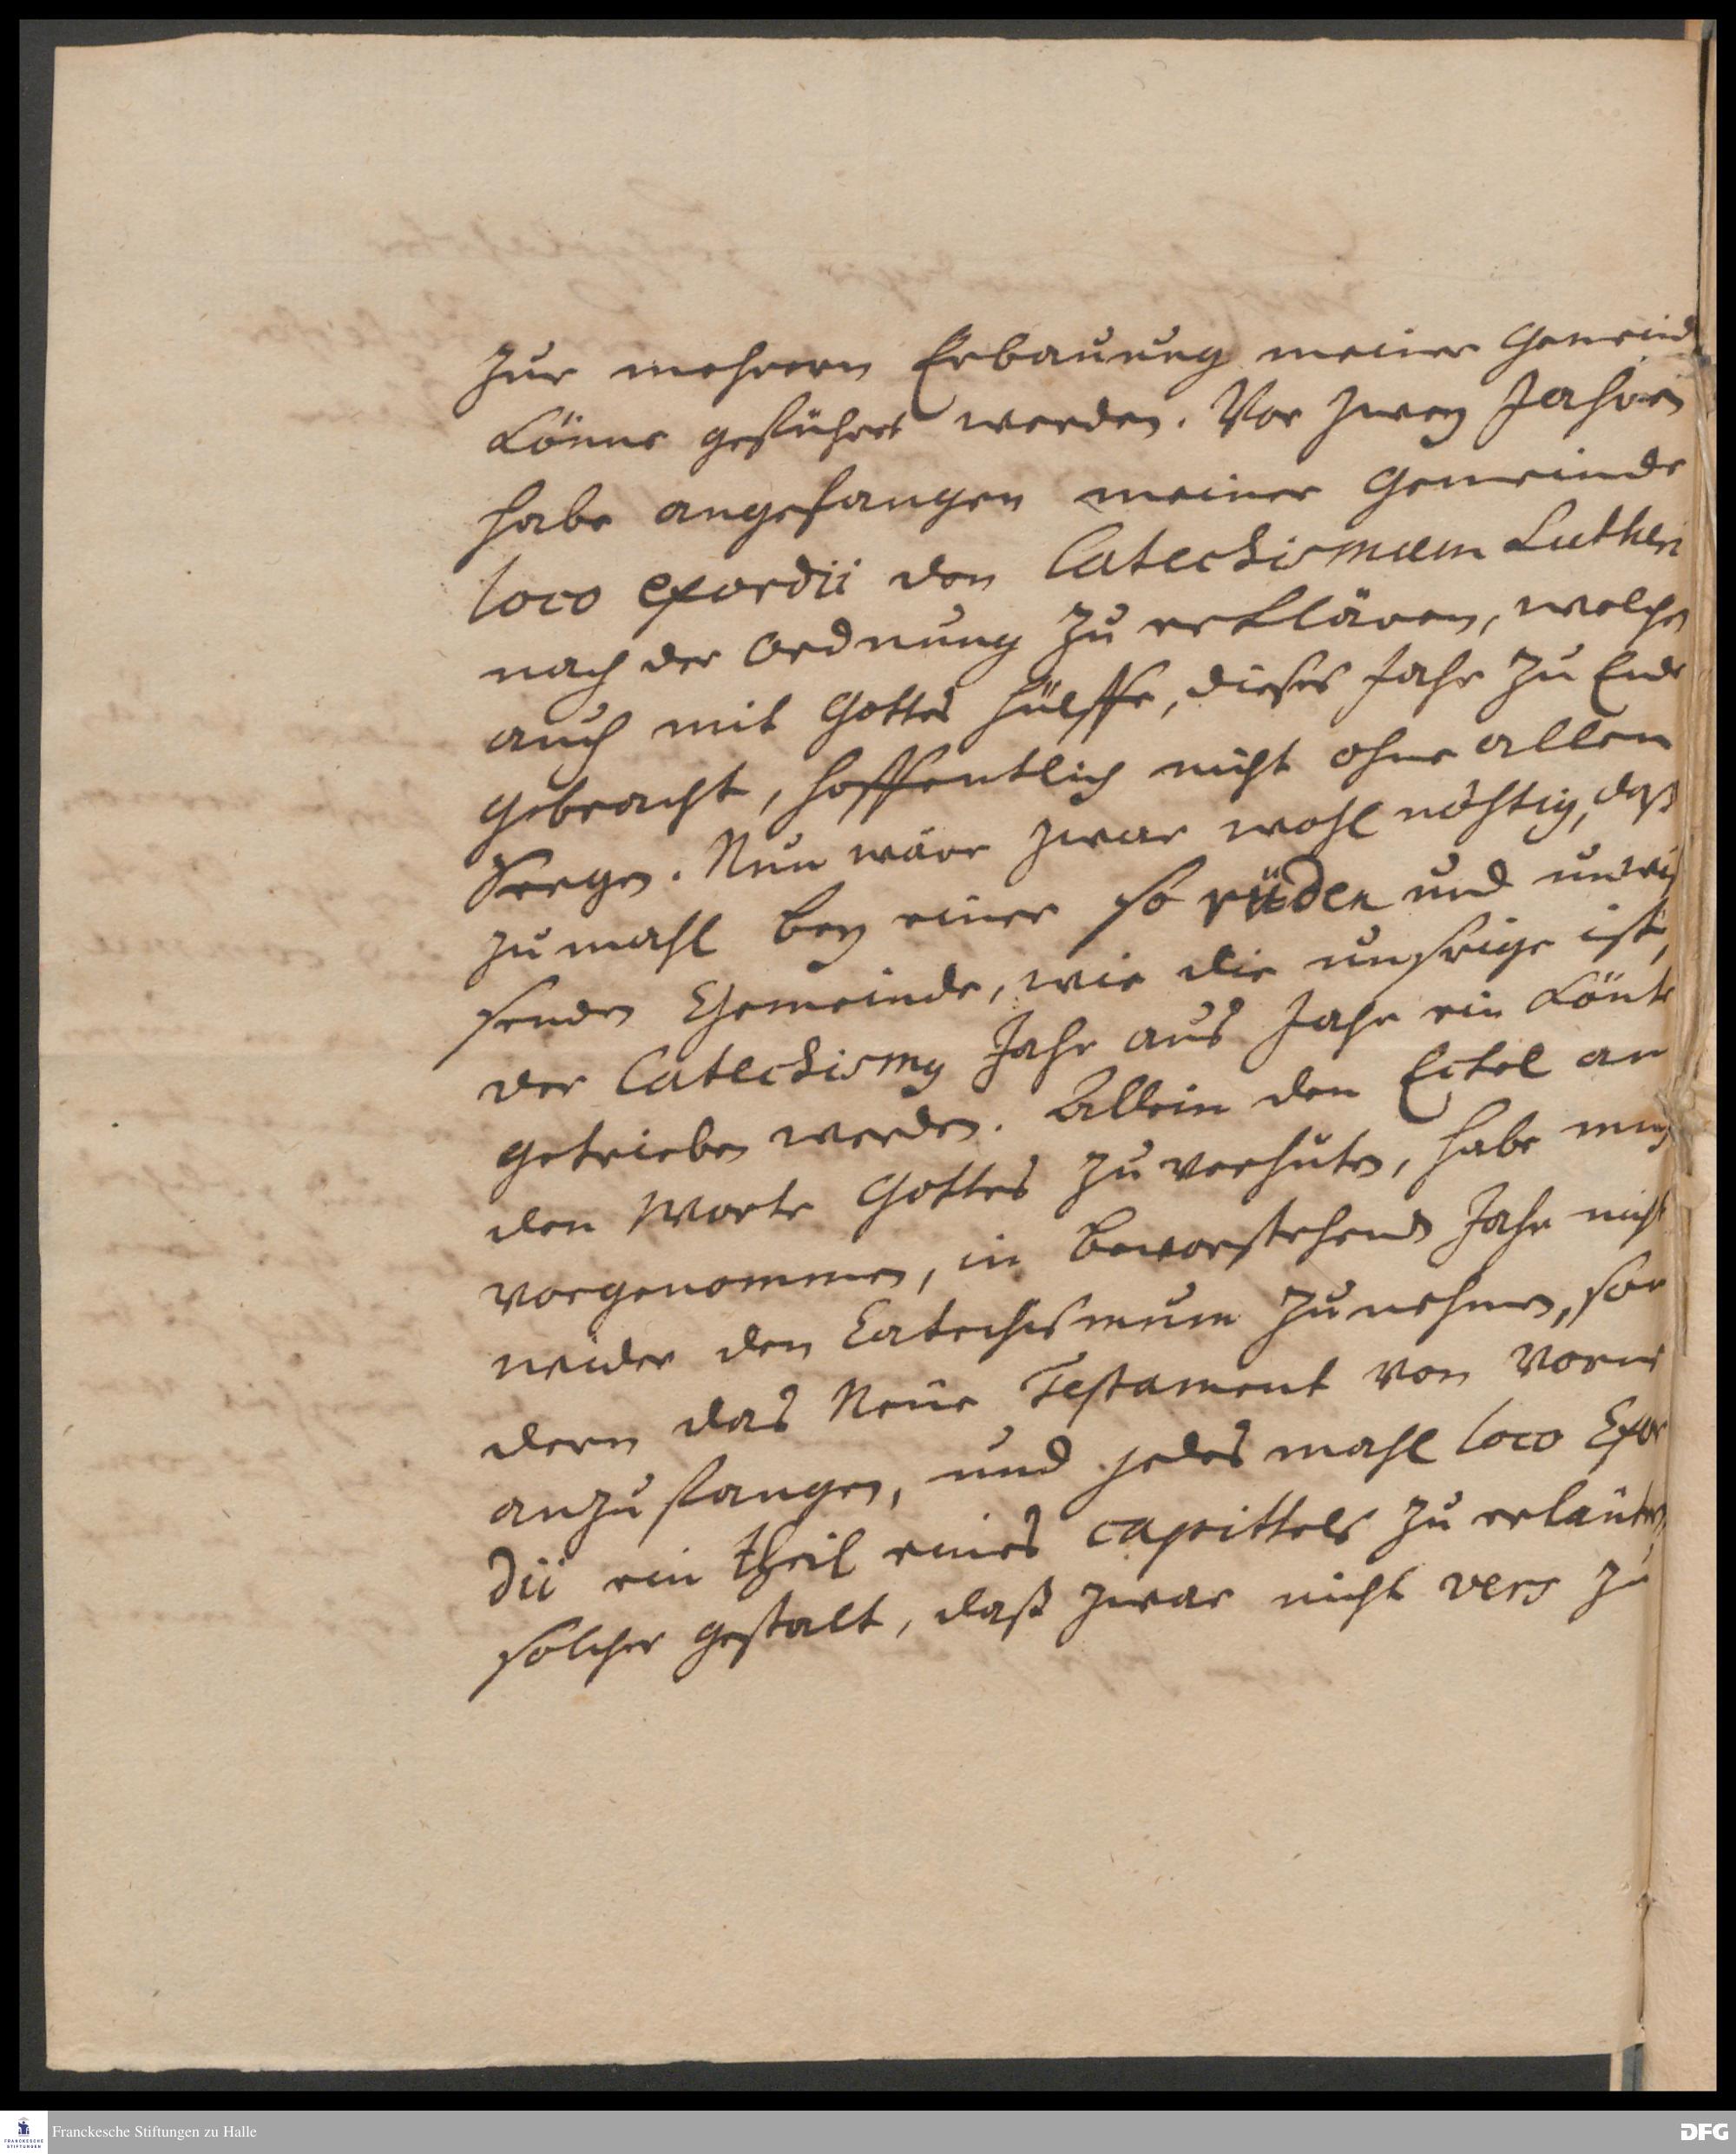 zur mehrern Erbauung meiner Gemeind
könne geführet werden. Vor zwey Jahren
habe angefangen meiner Gemeinde
loco exordii den Catechismum Lutheri
nach der Ordnung zu erklären, welchen
auch mit Gottes Hülffe, dieses Jahr zu Ende
gebracht, hoffentlich nicht ohne allen
Seegen. Nun wäre zwar wohl nöhtig, daß
zumahl bey einer so rüden und unwiß
senden Gemeinde, wie die unsrige ist,
der Catechismus Jahr aus Jahr ein könte
getrieben werden. Allein den Eckel an
dem Worte Gottes zu verhüten, habe mir
vorgenommen, in bevorstehenden Jahr nicht
wieder den Catechismum zu nehmen, son
dern das Neue Testament von vorne
anzufangen, und jedes mahl loco Exor
dii ein theil eines capittels zu erläutern,
solcher gestalt, daß zwar nicht vers zu
Franckesche Stiftungen zu Halle
FRANCKESCHE
STIFTUNGEN
DFG